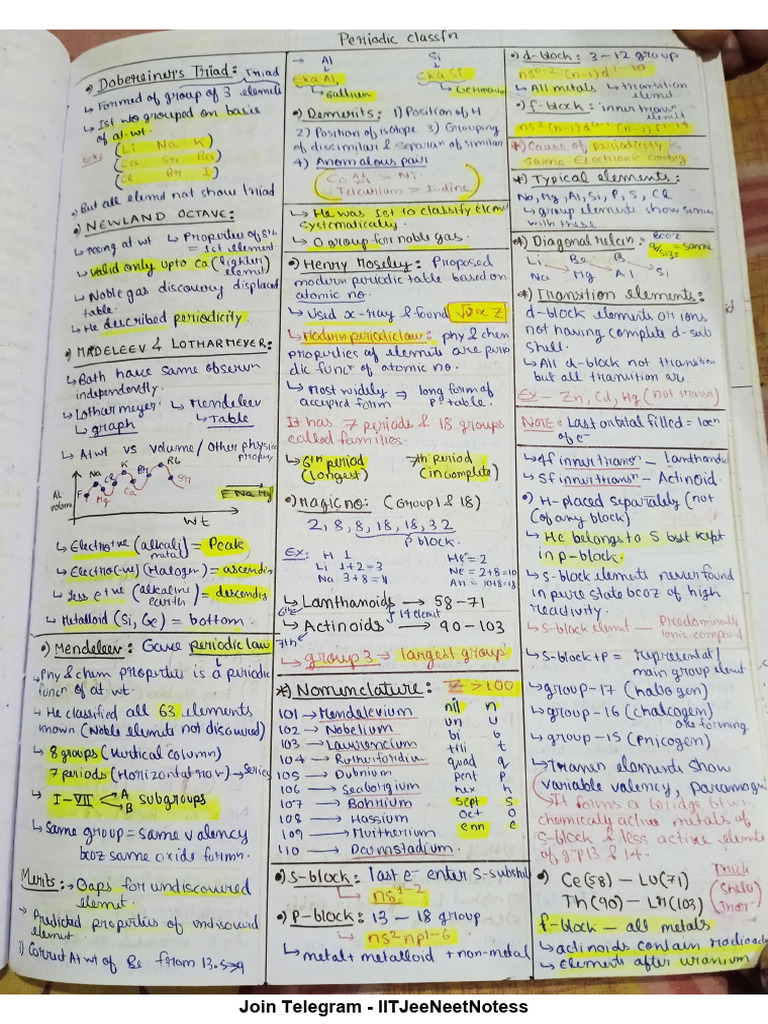 Periodic classfn
•) Dobereiner's Triad: Triad
↳ Formed of group of 3 elements
↳ Ist wo grouped on basis
of at.wt.
Ex: (Li Na K)
(Ca Sr Ba)
(Ce Br I)
↳ But all elemnt not show triad
•) NEWLAND OCTAVE:
↳ at wt ↳ Properties of 8th
= 1st element.
↳ valid only upto Ca (lighter)
elemnt
↳ Noble gas discovery displaced
table.
↳ He described periodicity.
•) MADELEEV & LOTHARMEYER:
↳ Both have same observn
independently.
↳ Lothar meyer ↳ Mendeleev
↳ graph ↳ Table
↳ At wt vs volume / other physical
At
volum
F Na Cl K Br Rb
Mg Ca Sr
F Na Mg
wt
↳ Electro+ve (alkali metal) = Peak
↳ Electro(-ve) (Halogen) = ascendig
↳ less e+ve (alkaline earth) = descendig
↳ Metalloid (Si, Ge) = bottom.
•) Mendeleev: Gave periodic law
↳ Phy & chem properties is a periodic
funcn of at wt.
↳ He classified all 63 elements
known (Noble elemnts not discovred)
↳ 8 groups (vertical column)
7 periods (Horizontal row) → Series
↳ I-VII < A B subgroups
↳ Same group = same valency
bcoz same oxide formn.
Merits: → Gaps for undiscoured
elemnt.
→ Predicted properties of undiscourd
elemnt.
3) Correct At wt of Be from 13.5→9
→ Al Si
Eka Al, Eka Si
↳ Gallium ↳ Germanium
•) Demerits: 1) Position of H
2) Position of isotope 3) Grouping
of dissimilar & separan of similar
4) Anomalous pair
Co At wt > Ni
Tellurium > Iodine
↳ He was 1st to classify elemnt
systematically.
↳ 0 group for noble gas.
•) Henry Moseley: Proposed
modern periodic table based on
atomic no.
↳ Used x-ray & found √ν ∝ Z
↳ Modern periodic law: phy & chem
properties of elements are perio
dic funcn of atomic no.
↳ Most widely accepted form ⇒ long form of P. table.
It has 7 periods & 18 groups
called families.
↳ 6th period (longest) 7th period (incomplete)
•) Magic no: (Group 1 & 18)
2, 8, 8, 18, 18, 32
P block.
Ex: H 1 He = 2
Li 1+2=3 Ne = 2+8=10
Na 3+8=11 Ar = 10+8=18
↳ Lanthanoids → 58-71
6th 14 elemt
↳ Actinoids → 90-103
7th
↳ group 3 → largest group
*) Nomenclature: Z > 100
101 → Mendelevium nil n
102 → Nobelium un u
103 → Lawrencium bi b
104 → Rutherfordium tri t
105 → Dubnium quad q
106 → Seaborgium pent p
107 → Bohrium hex h
108 → Hassium sept s
109 → Meitherium oct o
110 → Darmstadium. enn e
•) S-block: last e⁻ enter S-subshll
↳ ns¹⁻²
•) P-block: 13 - 18 group
↳ ns²np1-6
↳ metal + metalloid + non-metal
•) d-block: 3-12 group
ns⁰⁻² (n-1)d¹⁻¹⁰
↳ All metals ↳ transition
elemnt
•) f-block: inner transn
elemnt
*) Cause of periodicity is
same electronic config
*) Typical elements:
Na, Mg, Al, Si, P, S, Cl
↳ group elements show similar
with these
*) Diagonal relan: bcoz q/size = same
Li Be B
Na Mg Al Si
*) Transition elements:
d-block elements or ions
not having complete d-sub
shell.
↳ All d-block not transition
but all transition ar
Ex - Zn, Cd, Hg (not transn)
NOTE: Last orbital filled = locn
of e⁻
↳ 4f inner transn - Lanthanoid
↳ 5f inner transn - Actinoid.
•) H-placed separately (not
(of any block)
↳ He belongs to S but kept
in p-block.
↳ S-block elements never found
in pure state bcoz of high
reactivity.
↳ S-block elemnt - Predominantly
ionic compound
↳ S-block + P = Represental/
main group elemnt
↳ group-17 (halogen)
↳ group-16 (chalcogen)
ore forming
↳ group-15 (pnicogen)
↳ Transn elements show
variable valency, paramag
It forms a bridge btwn
chemically active metals of
S-block & less active elemts
of grp 13 & 14.
•) Ce(58) - Lu(71)
Th(90) - Lr(103)
f-block - all metals
↳ actinoids contain radioac
↳ Elements after uranium
Join Telegram - IITJeeNeetNotess